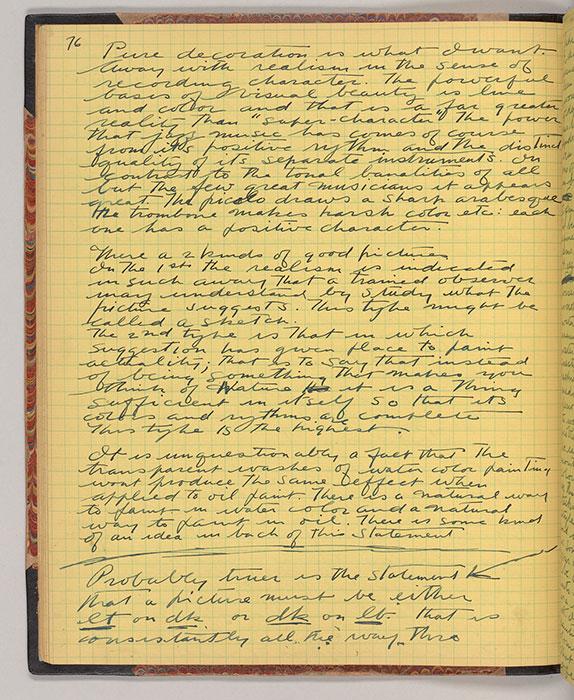 76
Pure decoration is what I want.
Away with realism in the sense of
recording character. The powerful
basis of visual beauty is line
and color and that is a far greater
reality than "super-character" The power
that jazz music has comes of course
from its positive rythm and the distinct
quality of its separate instruments. In
contrast to the tonal banalities of all
but the few great musicians it appears
great. The picolo draws a sharp arabesque
the trombone makes harsh color etc: each
one has a positive character.
There a 2 kinds of good pictures
In the 1st the realism is indicated
in such away that a trained observer
may understand by study what the
picture suggests. This type might be
called a sketch.
The 2nd type is that in which
suggestion has given place to paint
actuality; that is to say that instead
of being something that makes you
think of Nature it is a thing
sufficient in itself so that its
colors and rythms are complete
This type is the highest.
It is unquestionably a fact that the
transparent washes of water color painting
wont produce the same effect when
applied to oil paint. There is a natural way
to paint in water color and a natural
way to paint in oil. There is some kind
of an idea in back of this statement
Probably truer is the statement
that a picture must be either
lt on dk. or dk on lt. that is
consistantly all the way thro